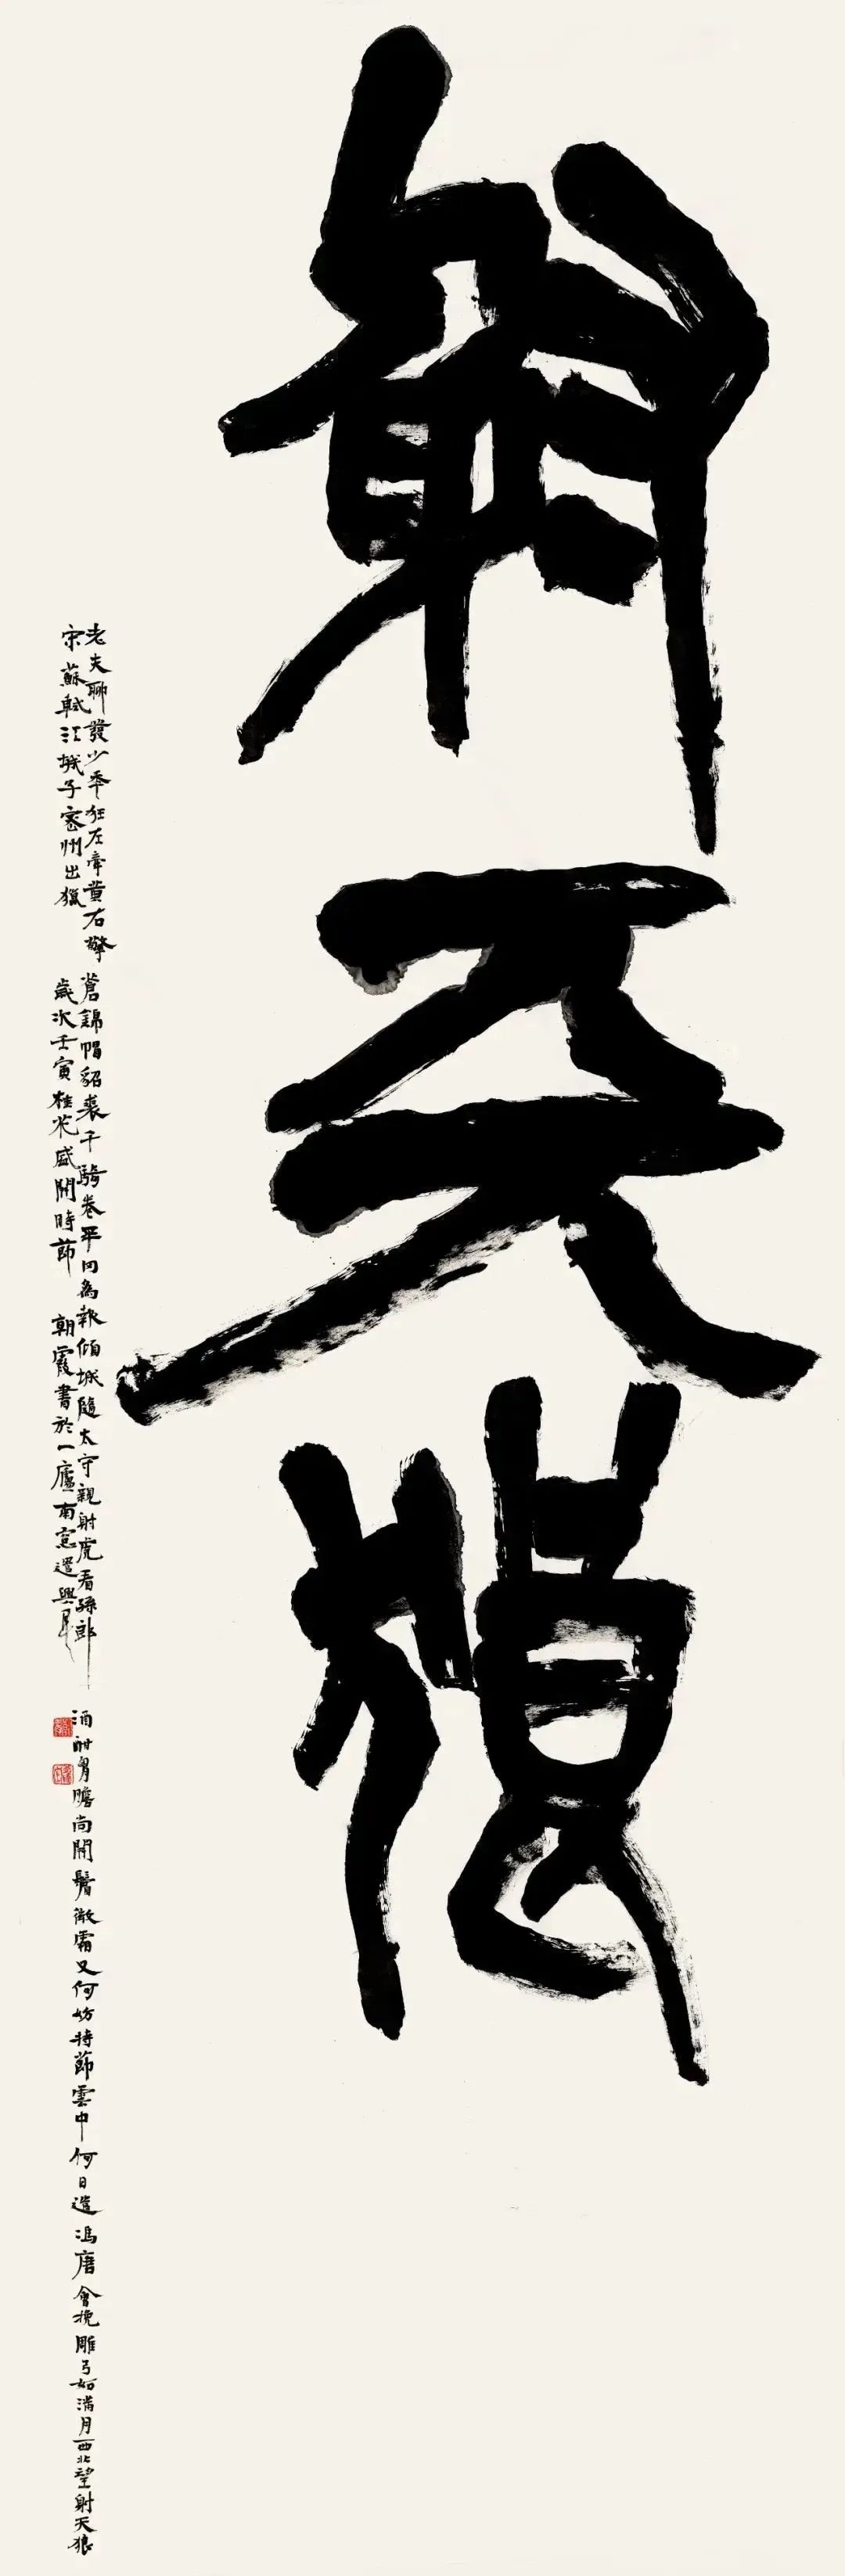 射天狼
老夫聊發少年狂左牽黃右擎蒼錦帽貂裘千騎卷平岡為報傾城隨太守親射虎看孫郎酒酣胷膽尚開鬢微霜又何妨持節雲中何日遣馮唐會挽雕弓如滿月西北望射天狼
宋蘇軾江城子密州出獵歲次壬寅桂花盛開時節朝霞書於一廬南窓遣興